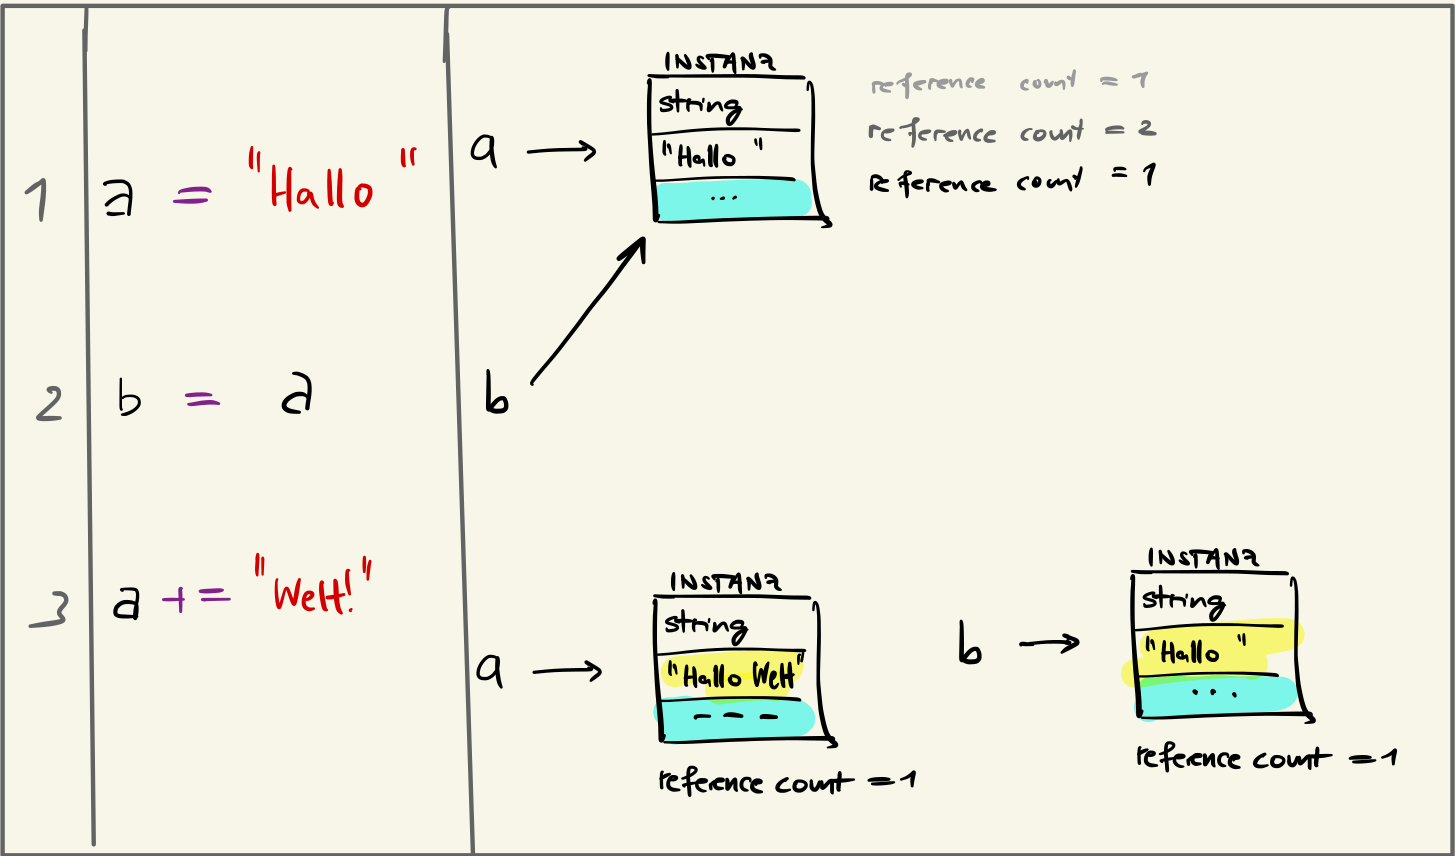 1 a = "Hallo "
a → INSTANZ
string
"Hallo "
...
reference count = 1
reference count = 2
reference count = 1
2 b = a
b
3 a += "Welt!"
a → INSTANZ
string
"Hallo Welt"
---
reference count = 1
b → INSTANZ
string
"Hallo "
...
reference count = 1